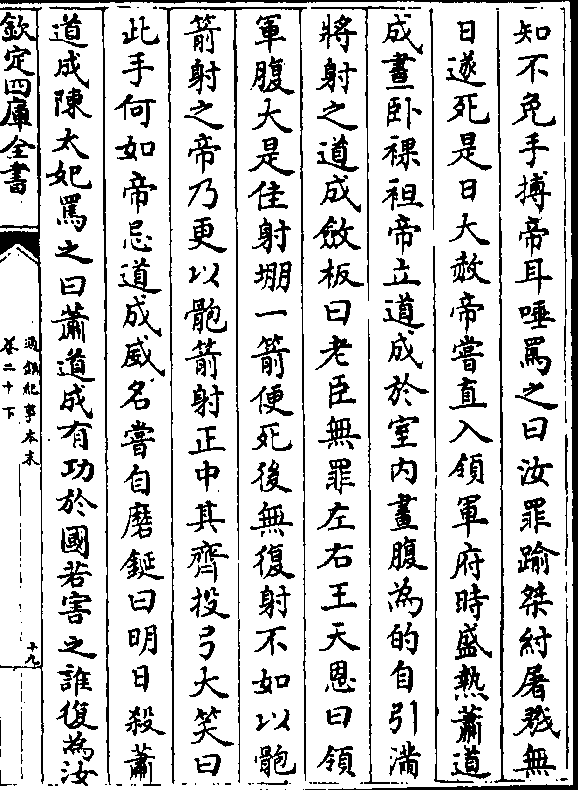 知不免手搏帝耳唾罵之曰汝罪踰桀紂屠戮無
日遂死是日大赦帝嘗直入領軍府時盛熱蕭道
成晝卧裸袒帝立道成於室内畫腹為的自引滿
將射之道成斂板曰老臣無罪左右王天恩曰領
軍腹大是佳射堋一箭便死後無復射不如以骲
箭射之帝乃更以骲箭射正中其齊投弓大笑曰
此手何如帝忌道成威名嘗自磨鋋曰明日殺蕭
道成陳太妃罵之曰蕭道成有功於國若害之誰復為汝
欽定四庫全書
通鑑紀事本末
卷二十下
十九